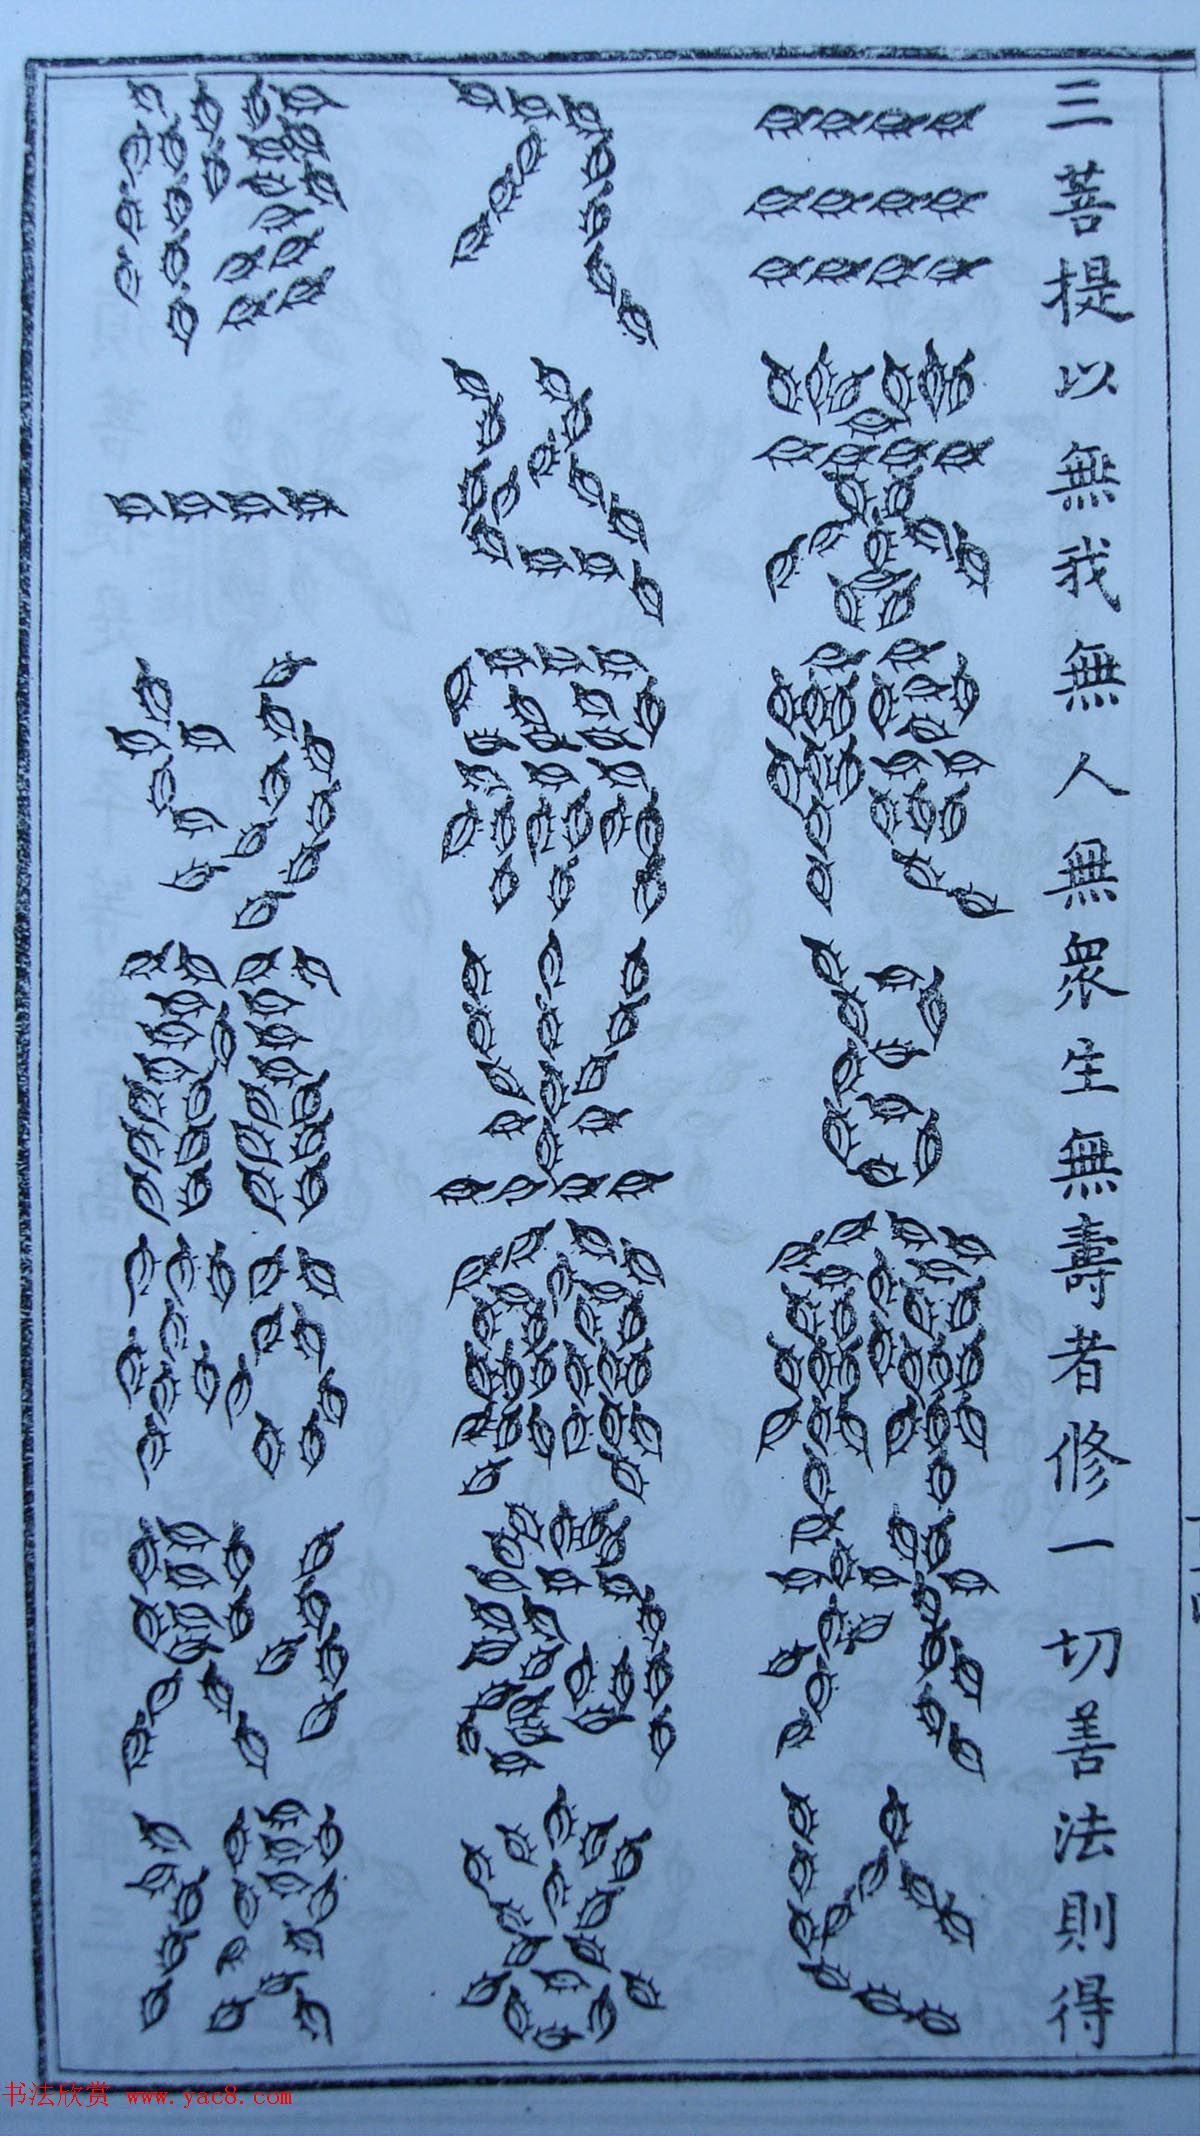 三菩提以無我無人無眾生無壽者修一切善法則得
三菩提以無我無
人無眾生無壽者
修一切善法則得
书法欣赏 www.yac8.com